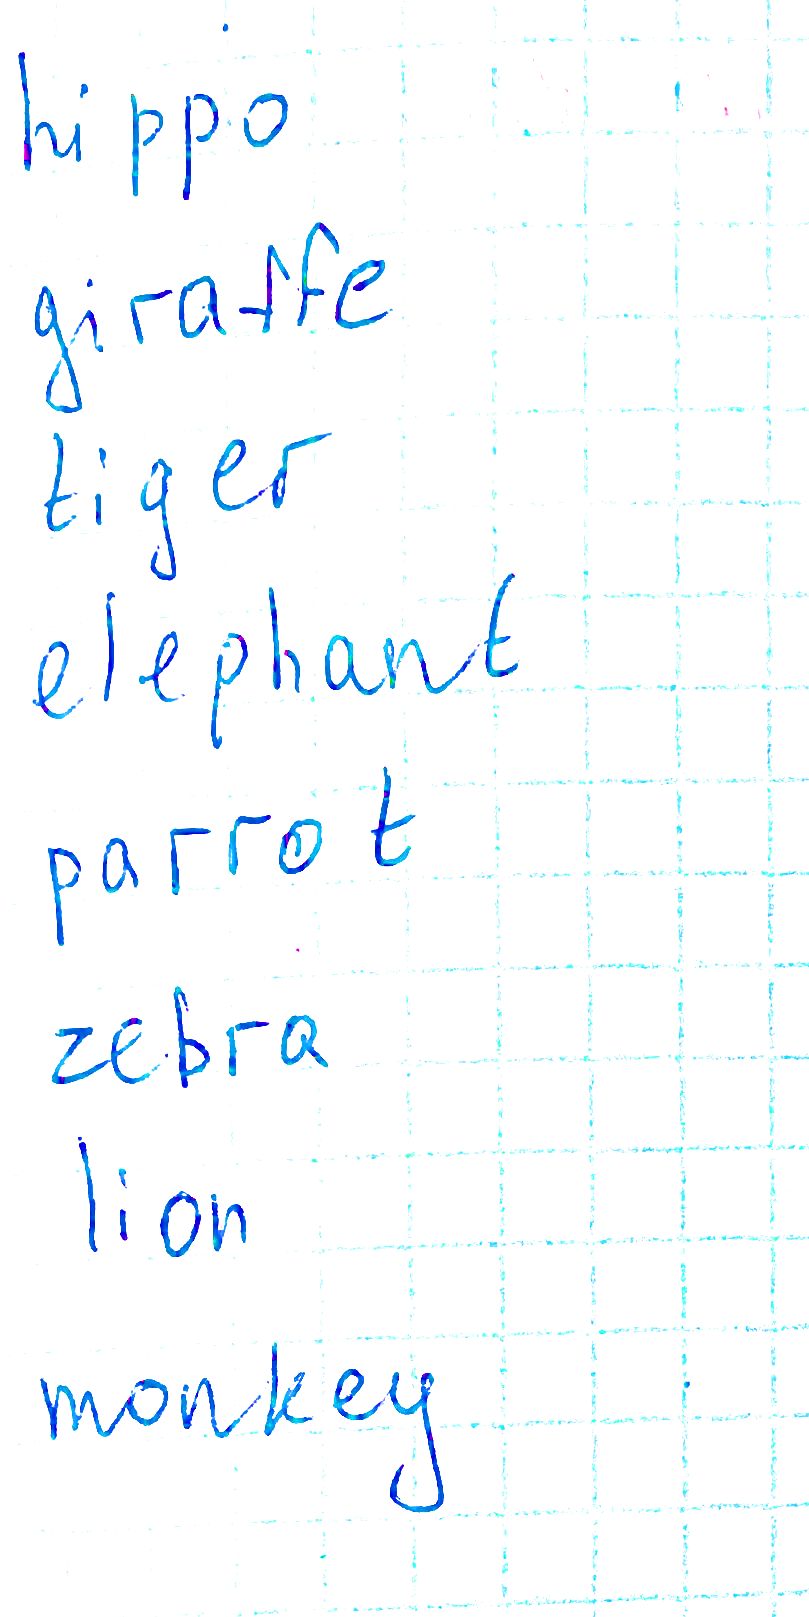 hippo
giraffe
tiger
elephant
parrot
zebra
lion
monkey